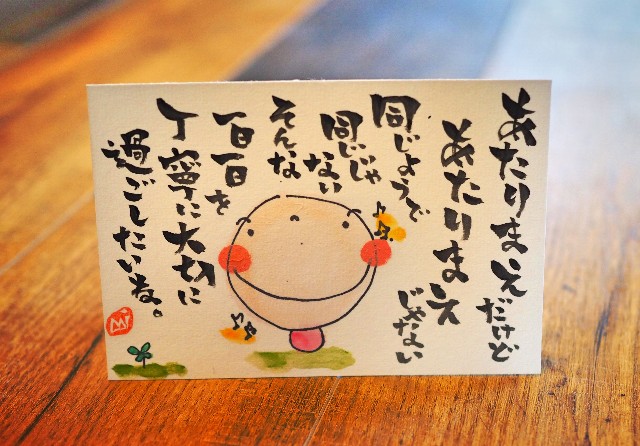 あたりまえだけど
あたりまえ
じゃない
同じようで
同じじゃ
ない
そんな
一日一日を
丁寧に大切に
過ごしたいね。